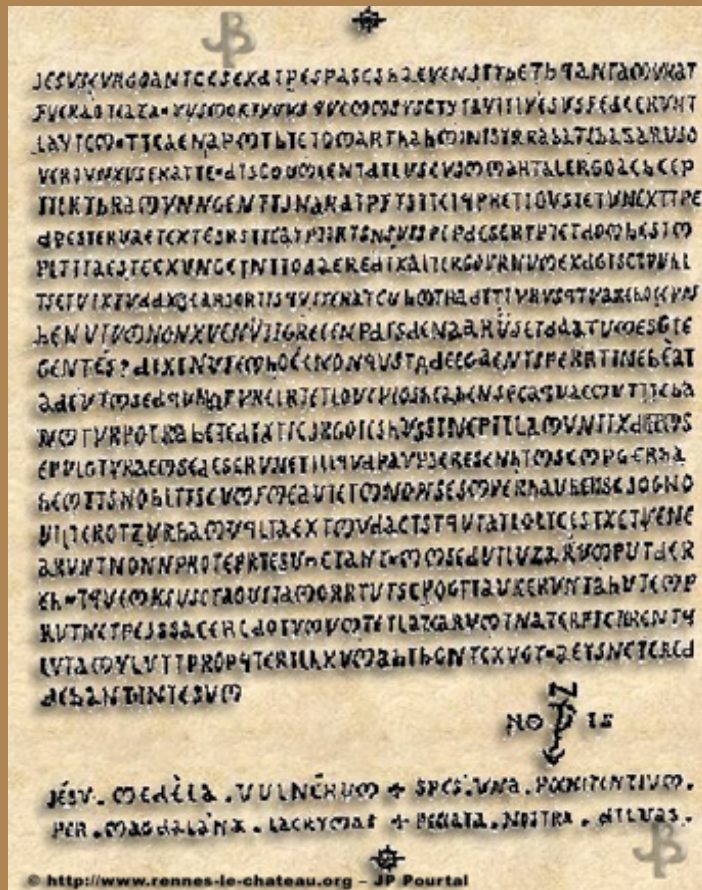 JESVSEVRGOANTCESEXDTPESPASCSHAEVENJTTBETHQANTAMVRAT
FVERAOTLAZA=VVSMORTVVVSQVEMMSVSCTYTAVITIVESVSFEDCERVNT
LAVTEM=TTCAENAPMTBTETOMARTHAHMINISTRRABATCBAZARVSO
VEROVNXVSERATTE=DTSCOVMLENTATLVSEVSMMARTALERGOACBCEP
TTLKTBRAMVNNGENTTJNARATPFTSTTCIQPRETIOVSTETVNEXTTPE
DPESTERVAETEXTESRSTTCAYPTIRTSNSVISPEPDESERTPTETDOMBESTM
PLTTTAESTEEXVNGETNTTODAEREDIXALTERGOVRNVMEXDGTSCTPVLL
TSETVIXTVDDXGEARJORTTSQVJYERATCVBMTRADTTTVRVSQTVAREHOCCVN
BENVTVMNONXVENVITGRECENPDTSDENAARVSETDAATVMESGTE
GENTES?DIXINVTEMHOECNONQVSTADEEGAENTSPERRTINEBEAT
ADEVTMSEDQVNQFVRELRTETLOVCVLOSHCABENSECAQVAEMVTTTEBA
NMTVRPOTRABETEDTXTTEJRGOTESHVSSTNEPTLLAMVNTTXDIEMS
EPVLGTVRAEMSEDESERVNETILIQVDPAVPJERESENHTMSEMPGERHA
BEMTTSNOBLTTSEVMFMEAVTETMNONPSESMPERHAVBENSEJOGNO
VILTEROTZVRBAMVQLTAEXTMVDAETSTQVTATLOLTCESTXETVENE
ARVNTNONNPROTEPRTESVMETANT=MMSEDVTLVZARVMPVTDER
EH=TQVEMKSVSCTAOVITAMORRTVTSCPOGTTAVKERVNTAHVTEMP
RVTNCTPEJSSSACERCDOTVMVMTETLAZARVMTNATERFTCRRENTQ
LVTAMYLVTTPROPQTERILLXVMABTBGNTCXVGT=AETSNETCRED
DEBANTINTESVM
NO IS
JÉSV . MEDÈLA . VVLNÉRVM + SPES . VNA . PŒNITENTIVM .
PER . MAGDALANÆ . LACRYMAS + PECCATA . NOSTRA . DILVAS .
© http://www.rennes-le-chateau.org – JP Pourtal